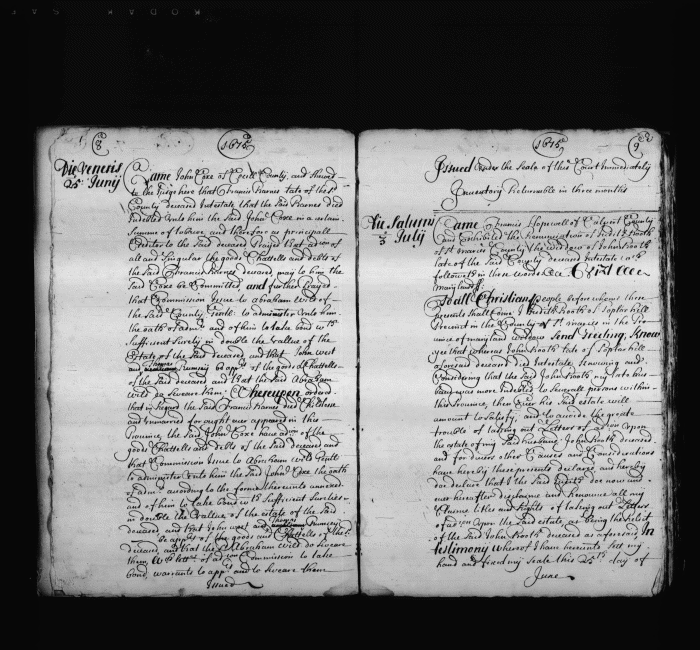 8
1675
Die Veneris
25 Junij
Came John Coxe of Cecill County, and shewed
to the Judge here that Francis Barnes late of the sd
County deceased Intestate that the said Barnes died
Indebted unto him the said John Coxe in a certain
Summe of tobacco and therefore as principall
Creditor to the said deceased Prayed that admon of
all and Singular the goods Chattells and debts of
the said Francis Barnes deceased may to him the
said Coxe be Committed and further Prayed
that Commission Issue to Abraham Wild of
the said County Gentl: to administer unto him
the oath of admr and of him to take bond wth
Sufficient Surety in double the vallue of the
Estate of the said deceased and that John West
and Thomas Rumsey be apprs of the goods & Chattells
of the said deceased and that the said Abraham
Wild do sweare them. Thereupon ordered
that in regard the said Francis Barnes died Childlesse
and unmarried for ought ever appeared in this
Province, the said John Coxe have admon of the
goods Chattells and debts of the said deceased and
that Commission Issue to Abraham Wild Gentl
to administer unto him the said John Coxe the oath
of admr according to the forme thereunto annexed
and of him to take bond wth Sufficient Suretyes
in double the vallue of the estate of the said
deceased, and that John West and Thomas Rumsey
be apprs of the goods and Chattells of the sd
deceased, and that the sd Abraham Wild do sweare
them, with letters of admon Commission to take
bond, warrants to apprs and to sweare them
Issued
1675
9
Issued under the Seale of this Court Immediately
Inventory Returnable in three months
Die Saturni
3 July
Came Francis Hopewell of Calvert County
and exhibited the Renunciation of Judith Rooth
of St maries County the widdow of John Rooth
late of the said County deceased intestate wch
followeth in these words
Maryland ss
To all Christian people before whom these
presents shall come I Judith Rooth of Poplar hill
Precinct in the County of St maries in the Pro
vince of maryland widdow Send Greeting, Know
yee that whereas John Rooth late of Poplar hill
aforesaid deceased died Intestate, knowing and
Considering that the said John Rooth my late hus
band was more Indebted to severall persons within
this Province, then ever his said estate will
amount to satisfy, and to avoide the greate
trouble of taking out Letters of admon upon
the estate of my said husband John Rooth deceased
and for divers other Causes and Considerations
have hereby these presents declared, and hereby
doe declare that I the said Judith doe now and
ever hereafter disclaime and renounce all my
Claime title and Rights of takeing out Letters
of admon upon the said estate, as being the Relict
of the said John Rooth deceased as aforesaid In
testimony whereof I have hereunto sett my
hand and fixed my seale this 25th day of
June